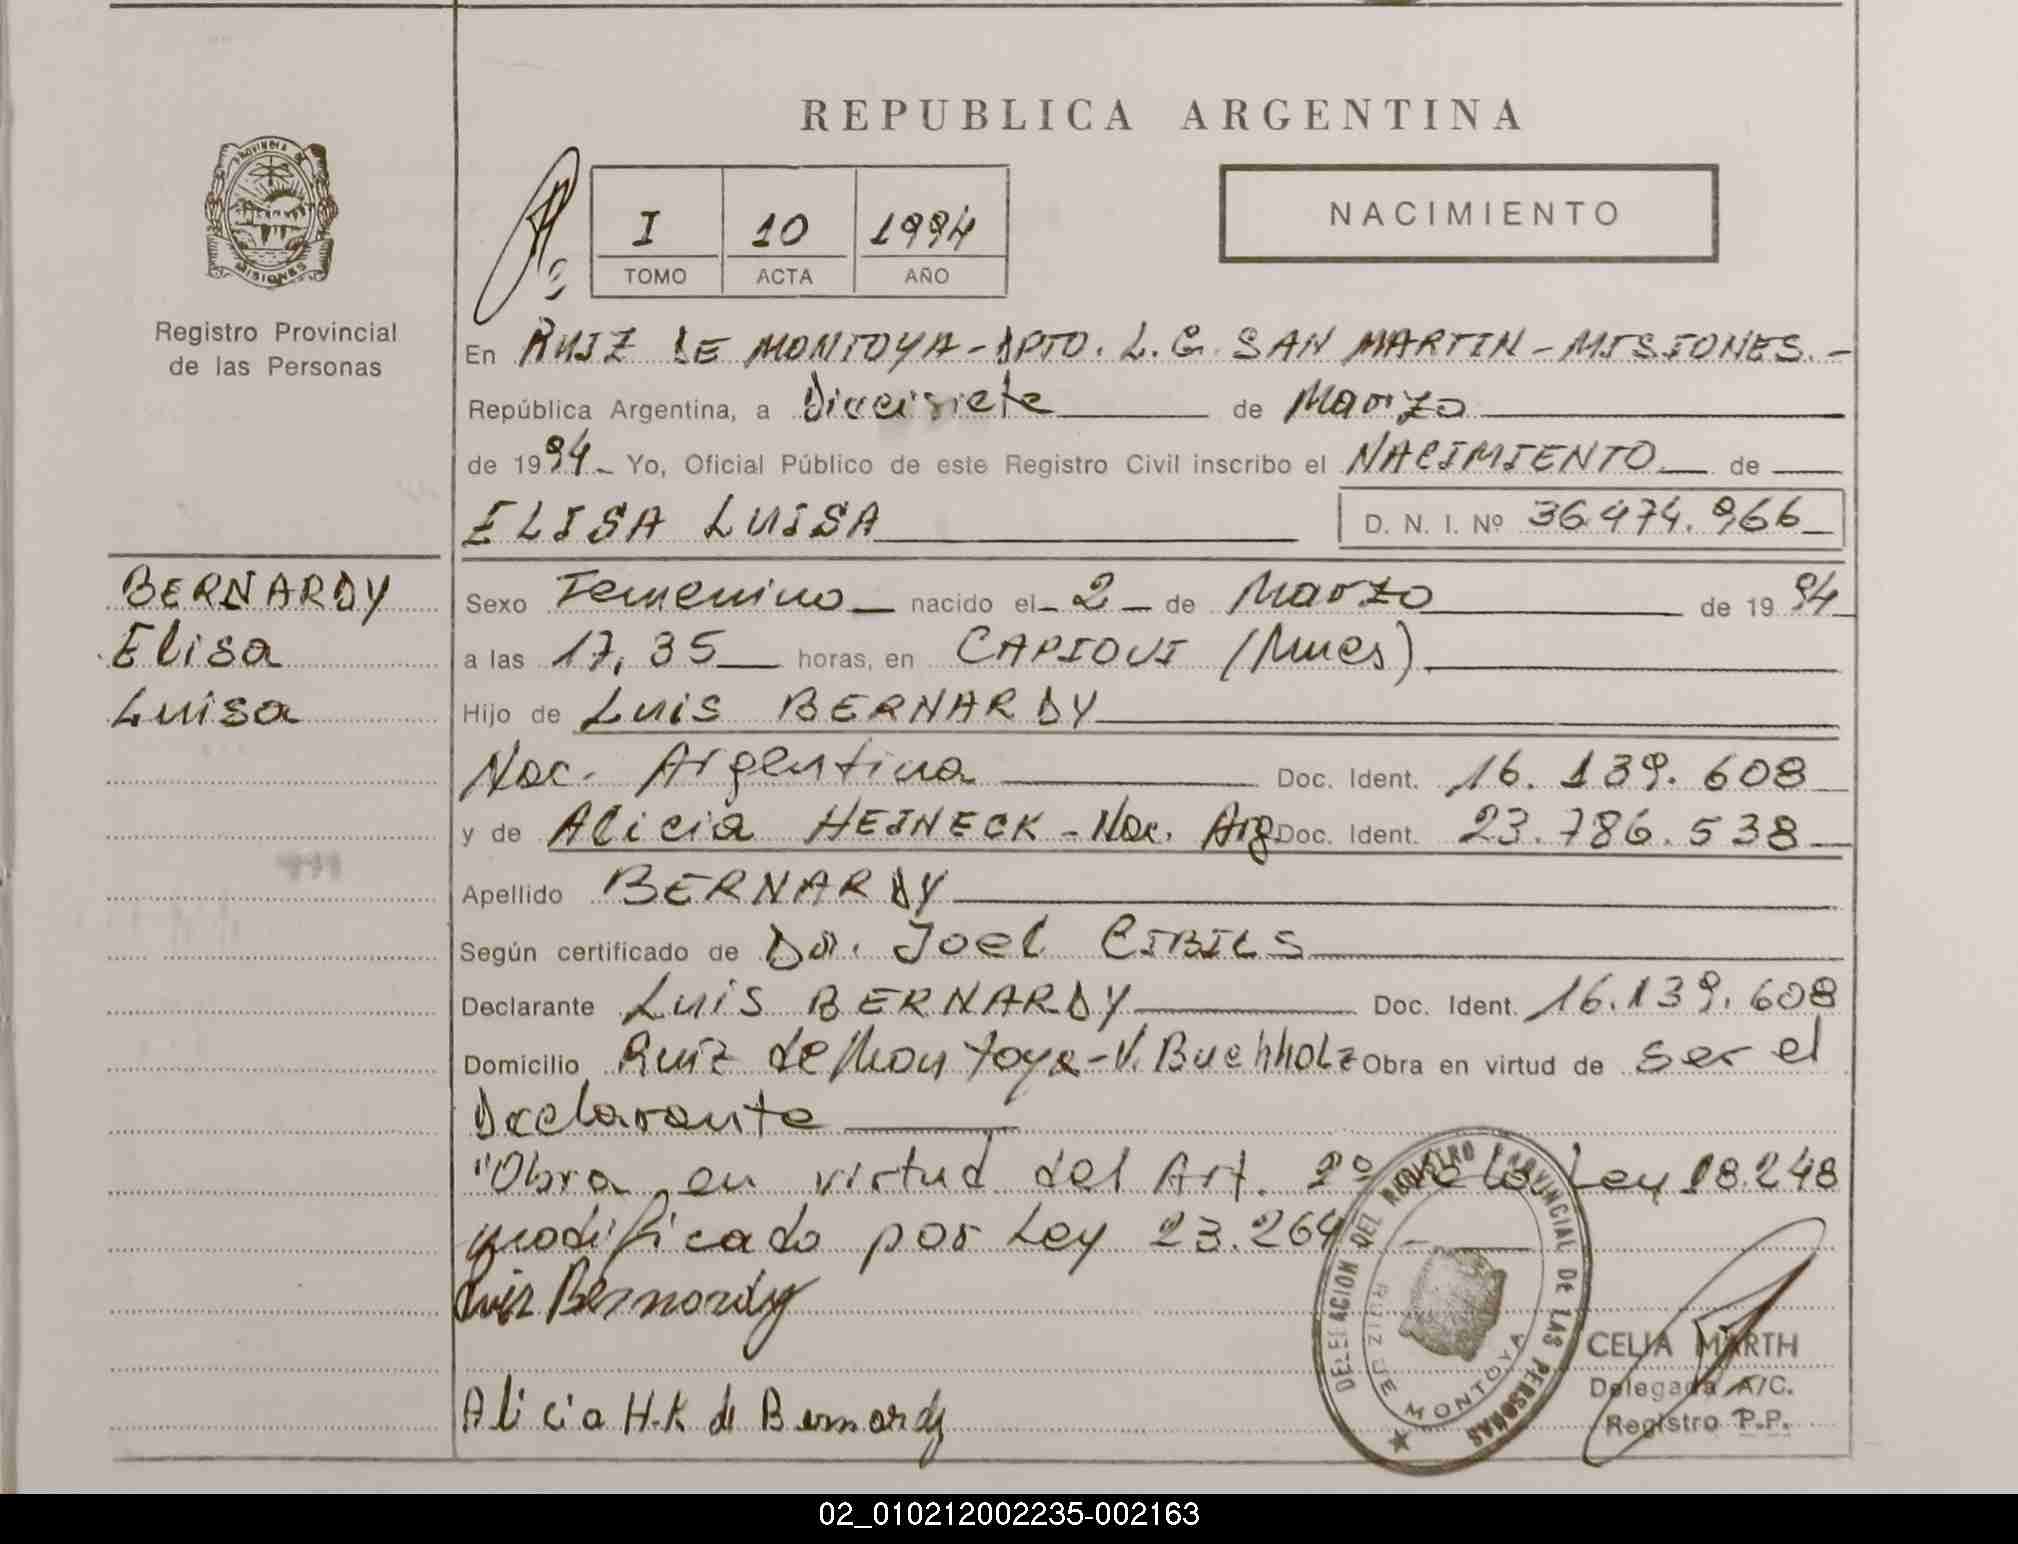 REPUBLICA ARGENTINA
PROVINCIA DE
MISIONES
Registro Provincial
de las Personas
I 10 1994
TOMO ACTA AÑO
NACIMIENTO
En RUIZ DE MONTOYA - DPTO. L. G. SAN MARTIN - MISIONES. -
República Argentina, a Diecisiete de Marzo
de 1994 - Yo, Oficial Público de este Registro Civil inscribo el NACIMIENTO de
ELISA LUISA D. N. I. Nº 36.474.966
BERNARDY
Elisa
Luisa
Sexo Femenino nacido el - 2 - de Marzo de 1994
a las 17,35 horas, en CAPIOVI (Mnes)
Hijo de Luis BERNARDY
Nac. Argentina Doc. Ident. 16.139.608
y de Alicia HEINECK - Nac. Arg Doc. Ident. 23.786.538
Apellido BERNARDY
Según certificado de Dr. Joel CIBILS
Declarante Luis BERNARDY Doc. Ident. 16.139.608
Domicilio Ruiz de Montoya - V. Buchholz Obra en virtud de ser el
Declarante
"Obra en virtud del Art. 2º de la Ley 18.248
modificado por Ley 23.264
Luis Bernardy
Alicia H.K de Bernardy
DELEGACION DEL REGISTRO PROVINCIAL DE LAS PERSONAS
RUIZ DE MONTOYA
CELIA MARTH
Delegada A/C.
Registro P.P.
02_010212002235-002163